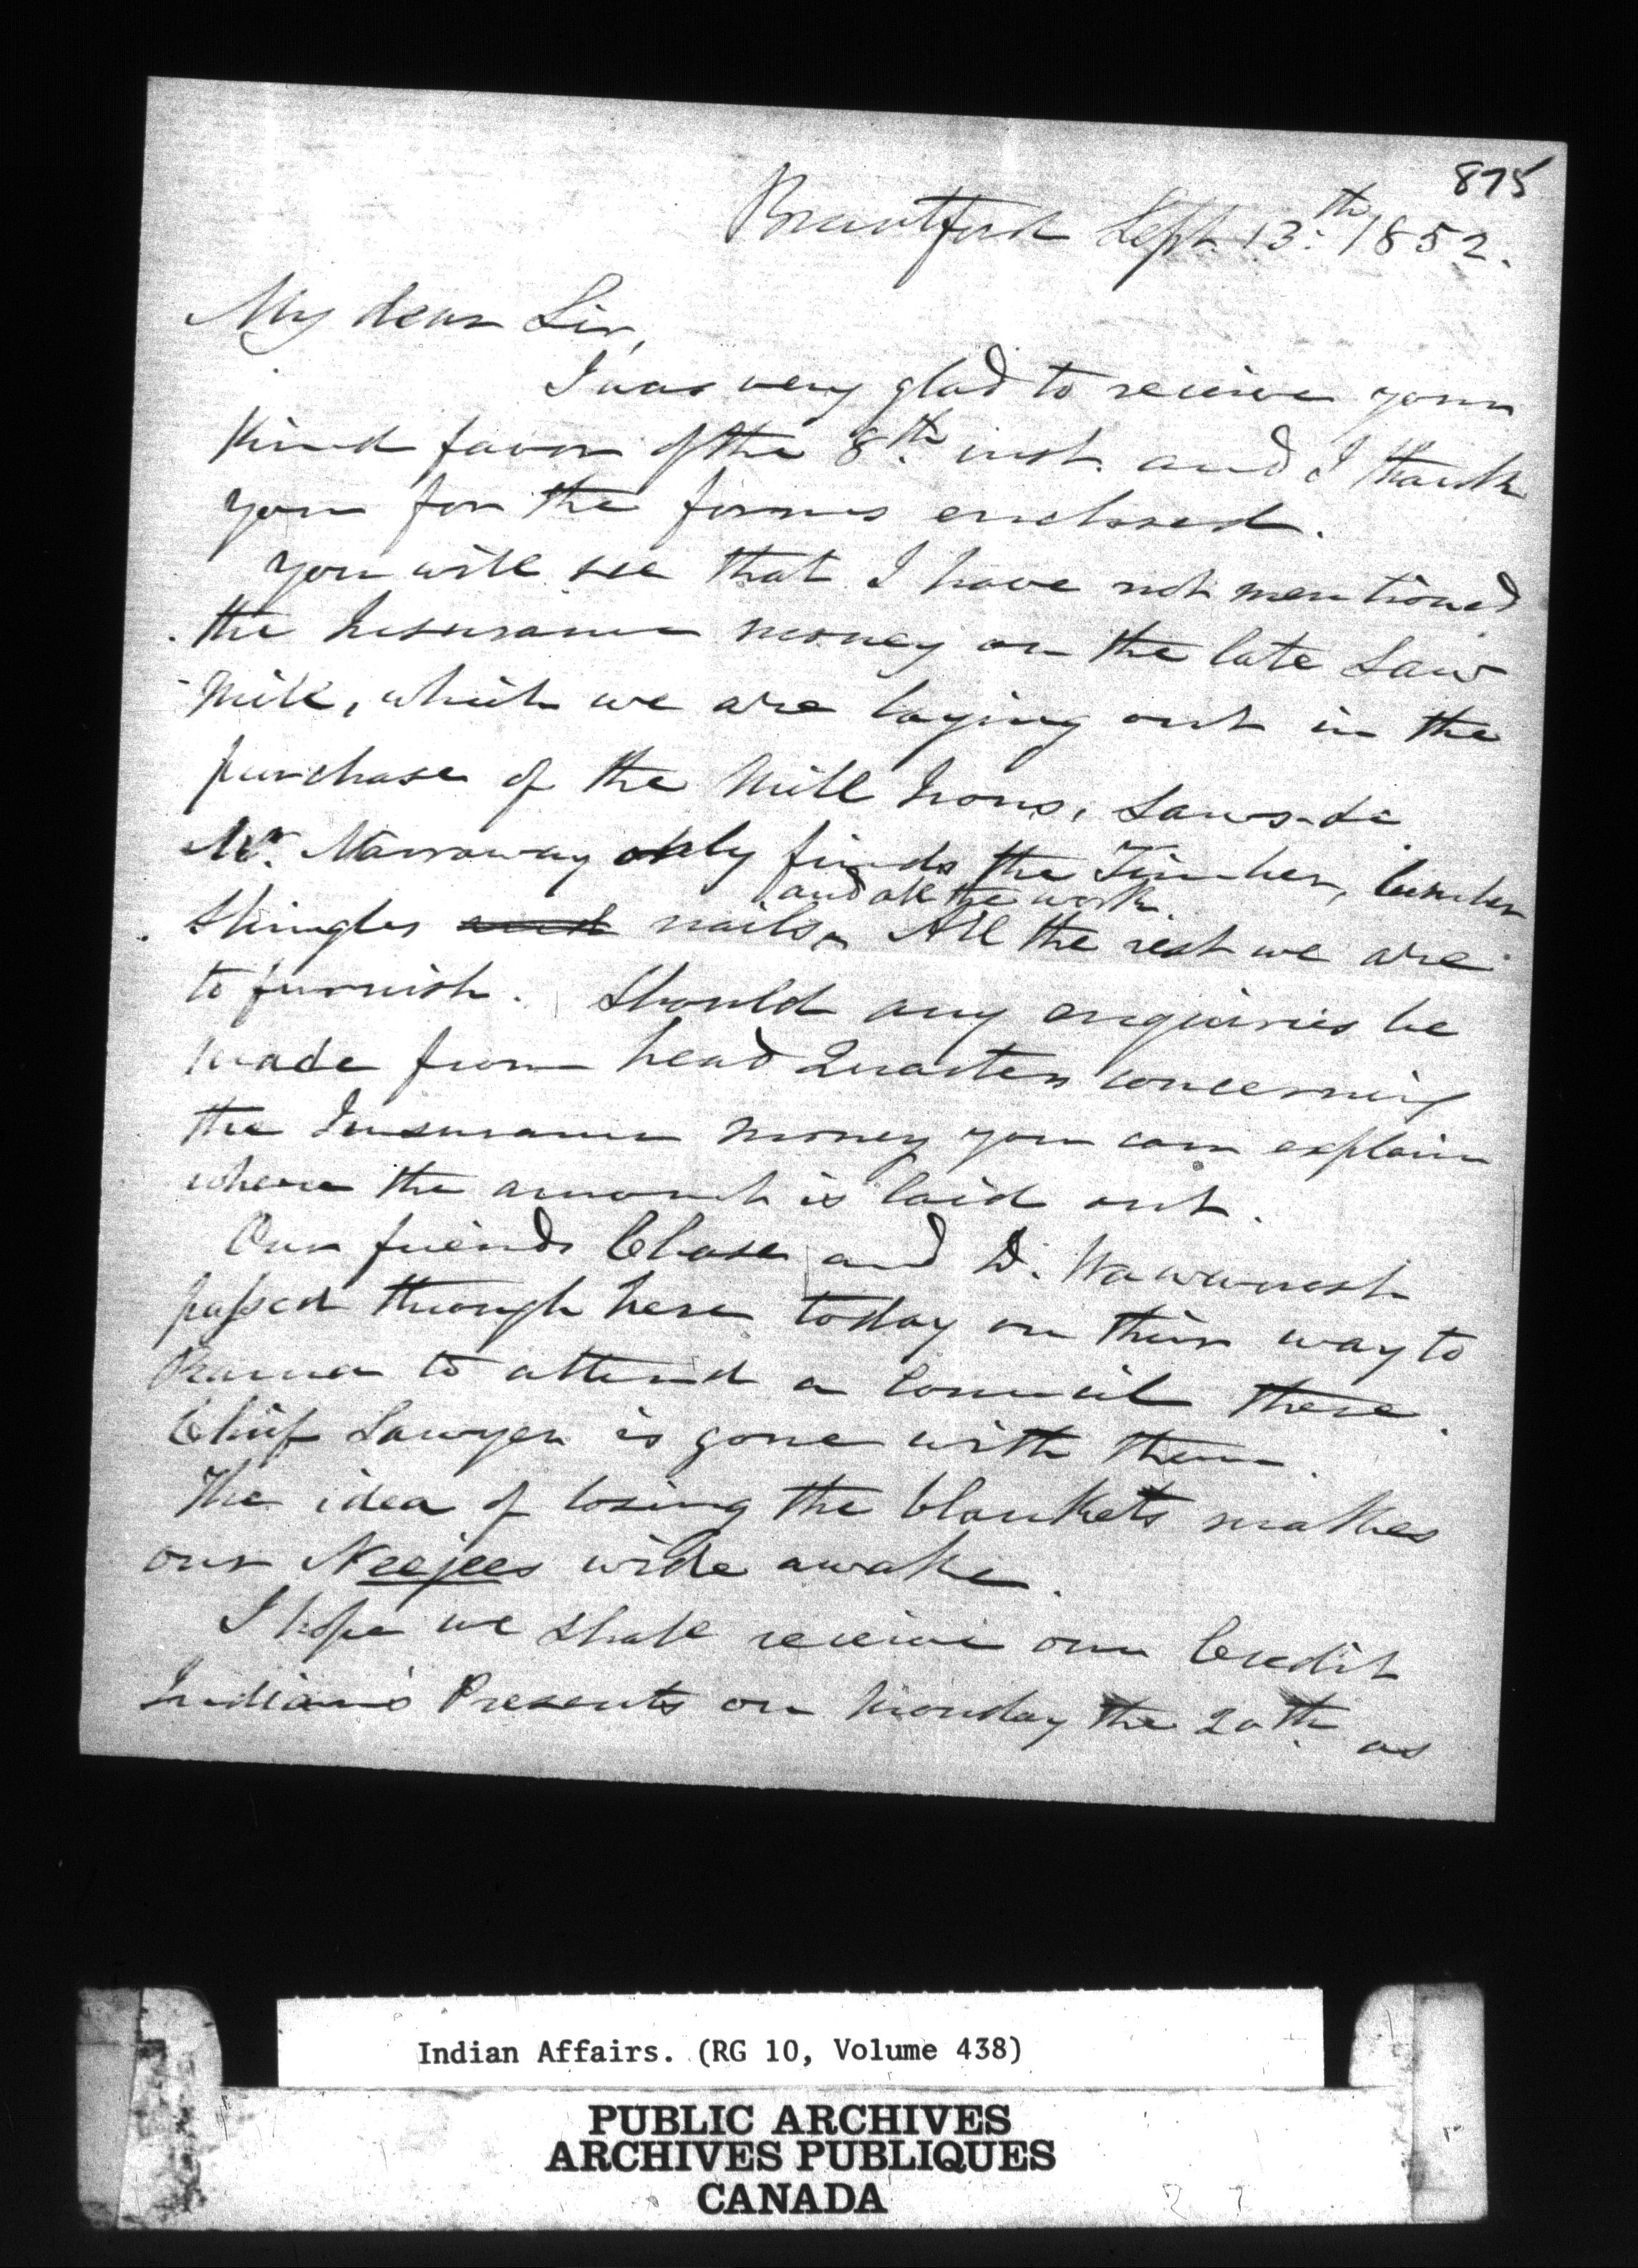 875
Brantford Sept. 13th 1852.
My dear Sir,
I was very glad to receive your
kind favor of the 8th inst. and I thank
you for the forms enclosed.
You will see that I have not mentioned
the Insurance money on the late Saw
Mill, which we are laying out in the
purchase of the Mill Irons, Saws &c
Mr. Marraway only finds the Timber, lumber
and all the work.
Shingles and nails. All the rest we are
to furnish. Should any enquiries be
made from head Quarters concerning
the Insurance money you can explain
where the amount is laid out.
Our friends Chase and D. Wawanosh
passed through here today on their way to
Rama to attend a Council there.
Chief Sawyer is gone with them.
The idea of losing the blankets makes
our Neejees wide awake.
I hope we shall receive our Credit
Indians Presents on Monday the 20th as
Indian Affairs. (RG 10, Volume 438)
PUBLIC ARCHIVES
ARCHIVES PUBLIQUES
CANADA